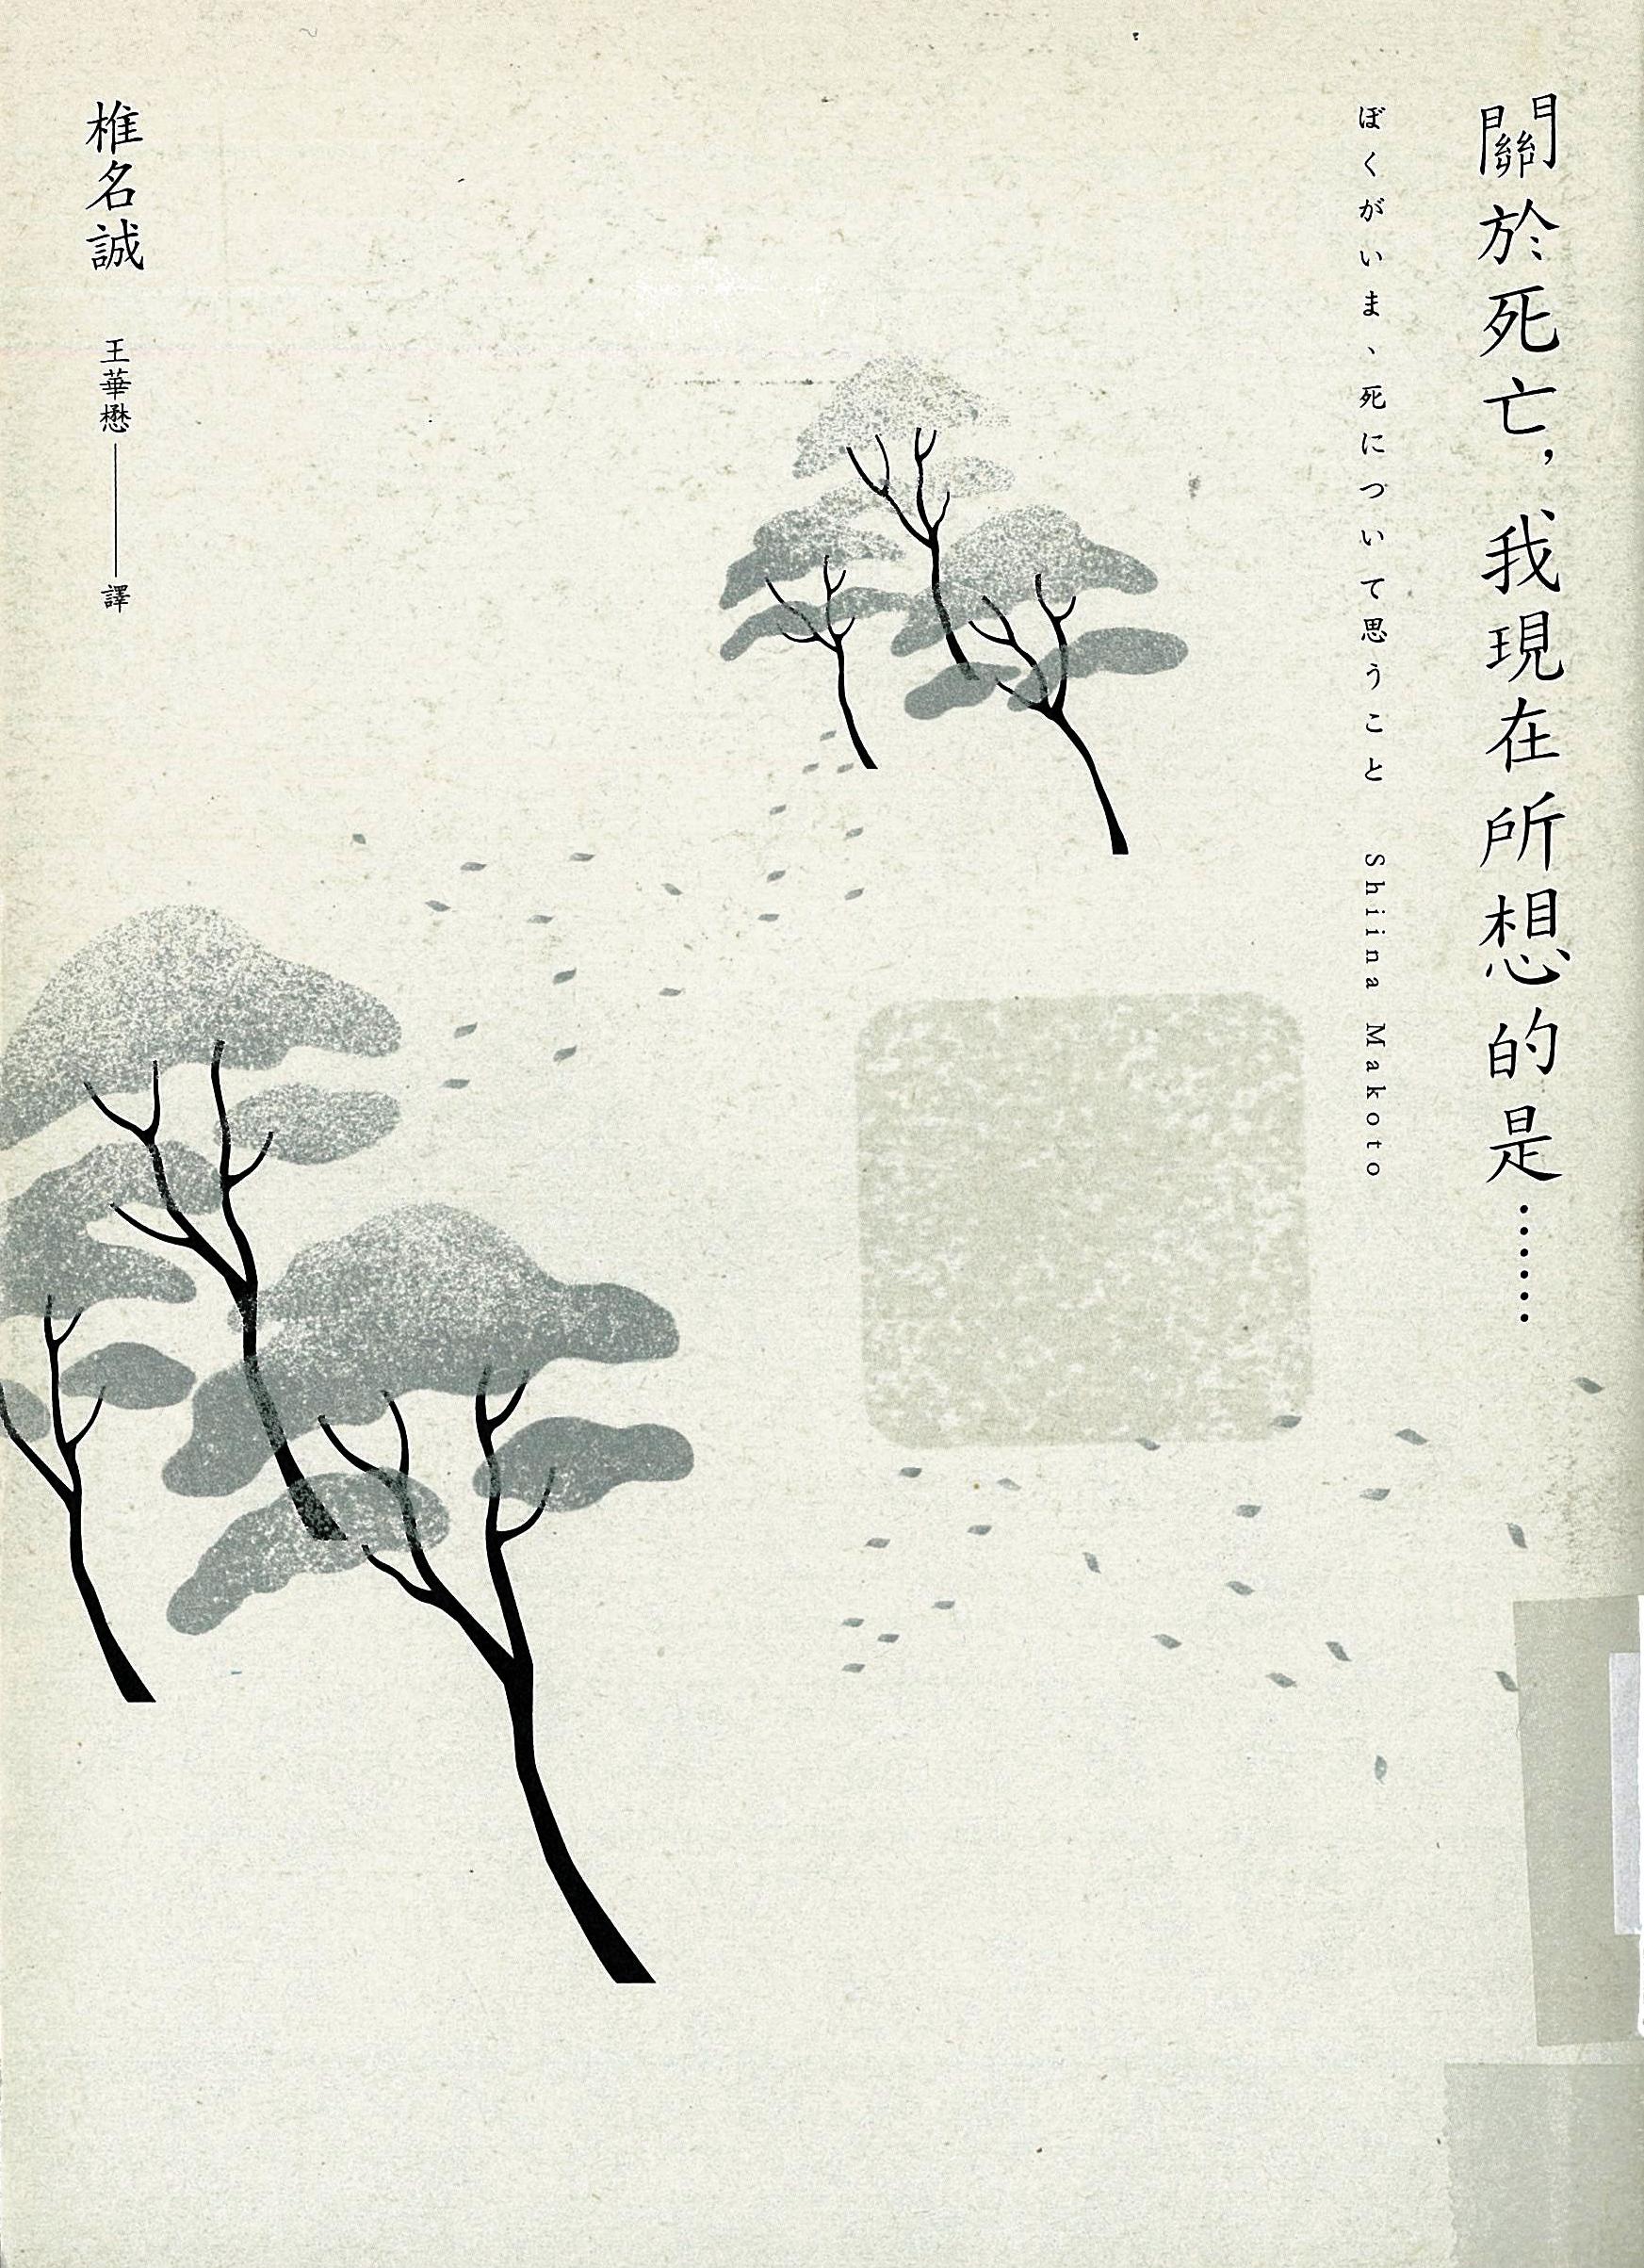 關於死亡，我現在所想的是……
ぼくがいま、死について思うこと Shiina Makoto
椎名誠 王華懋──譯